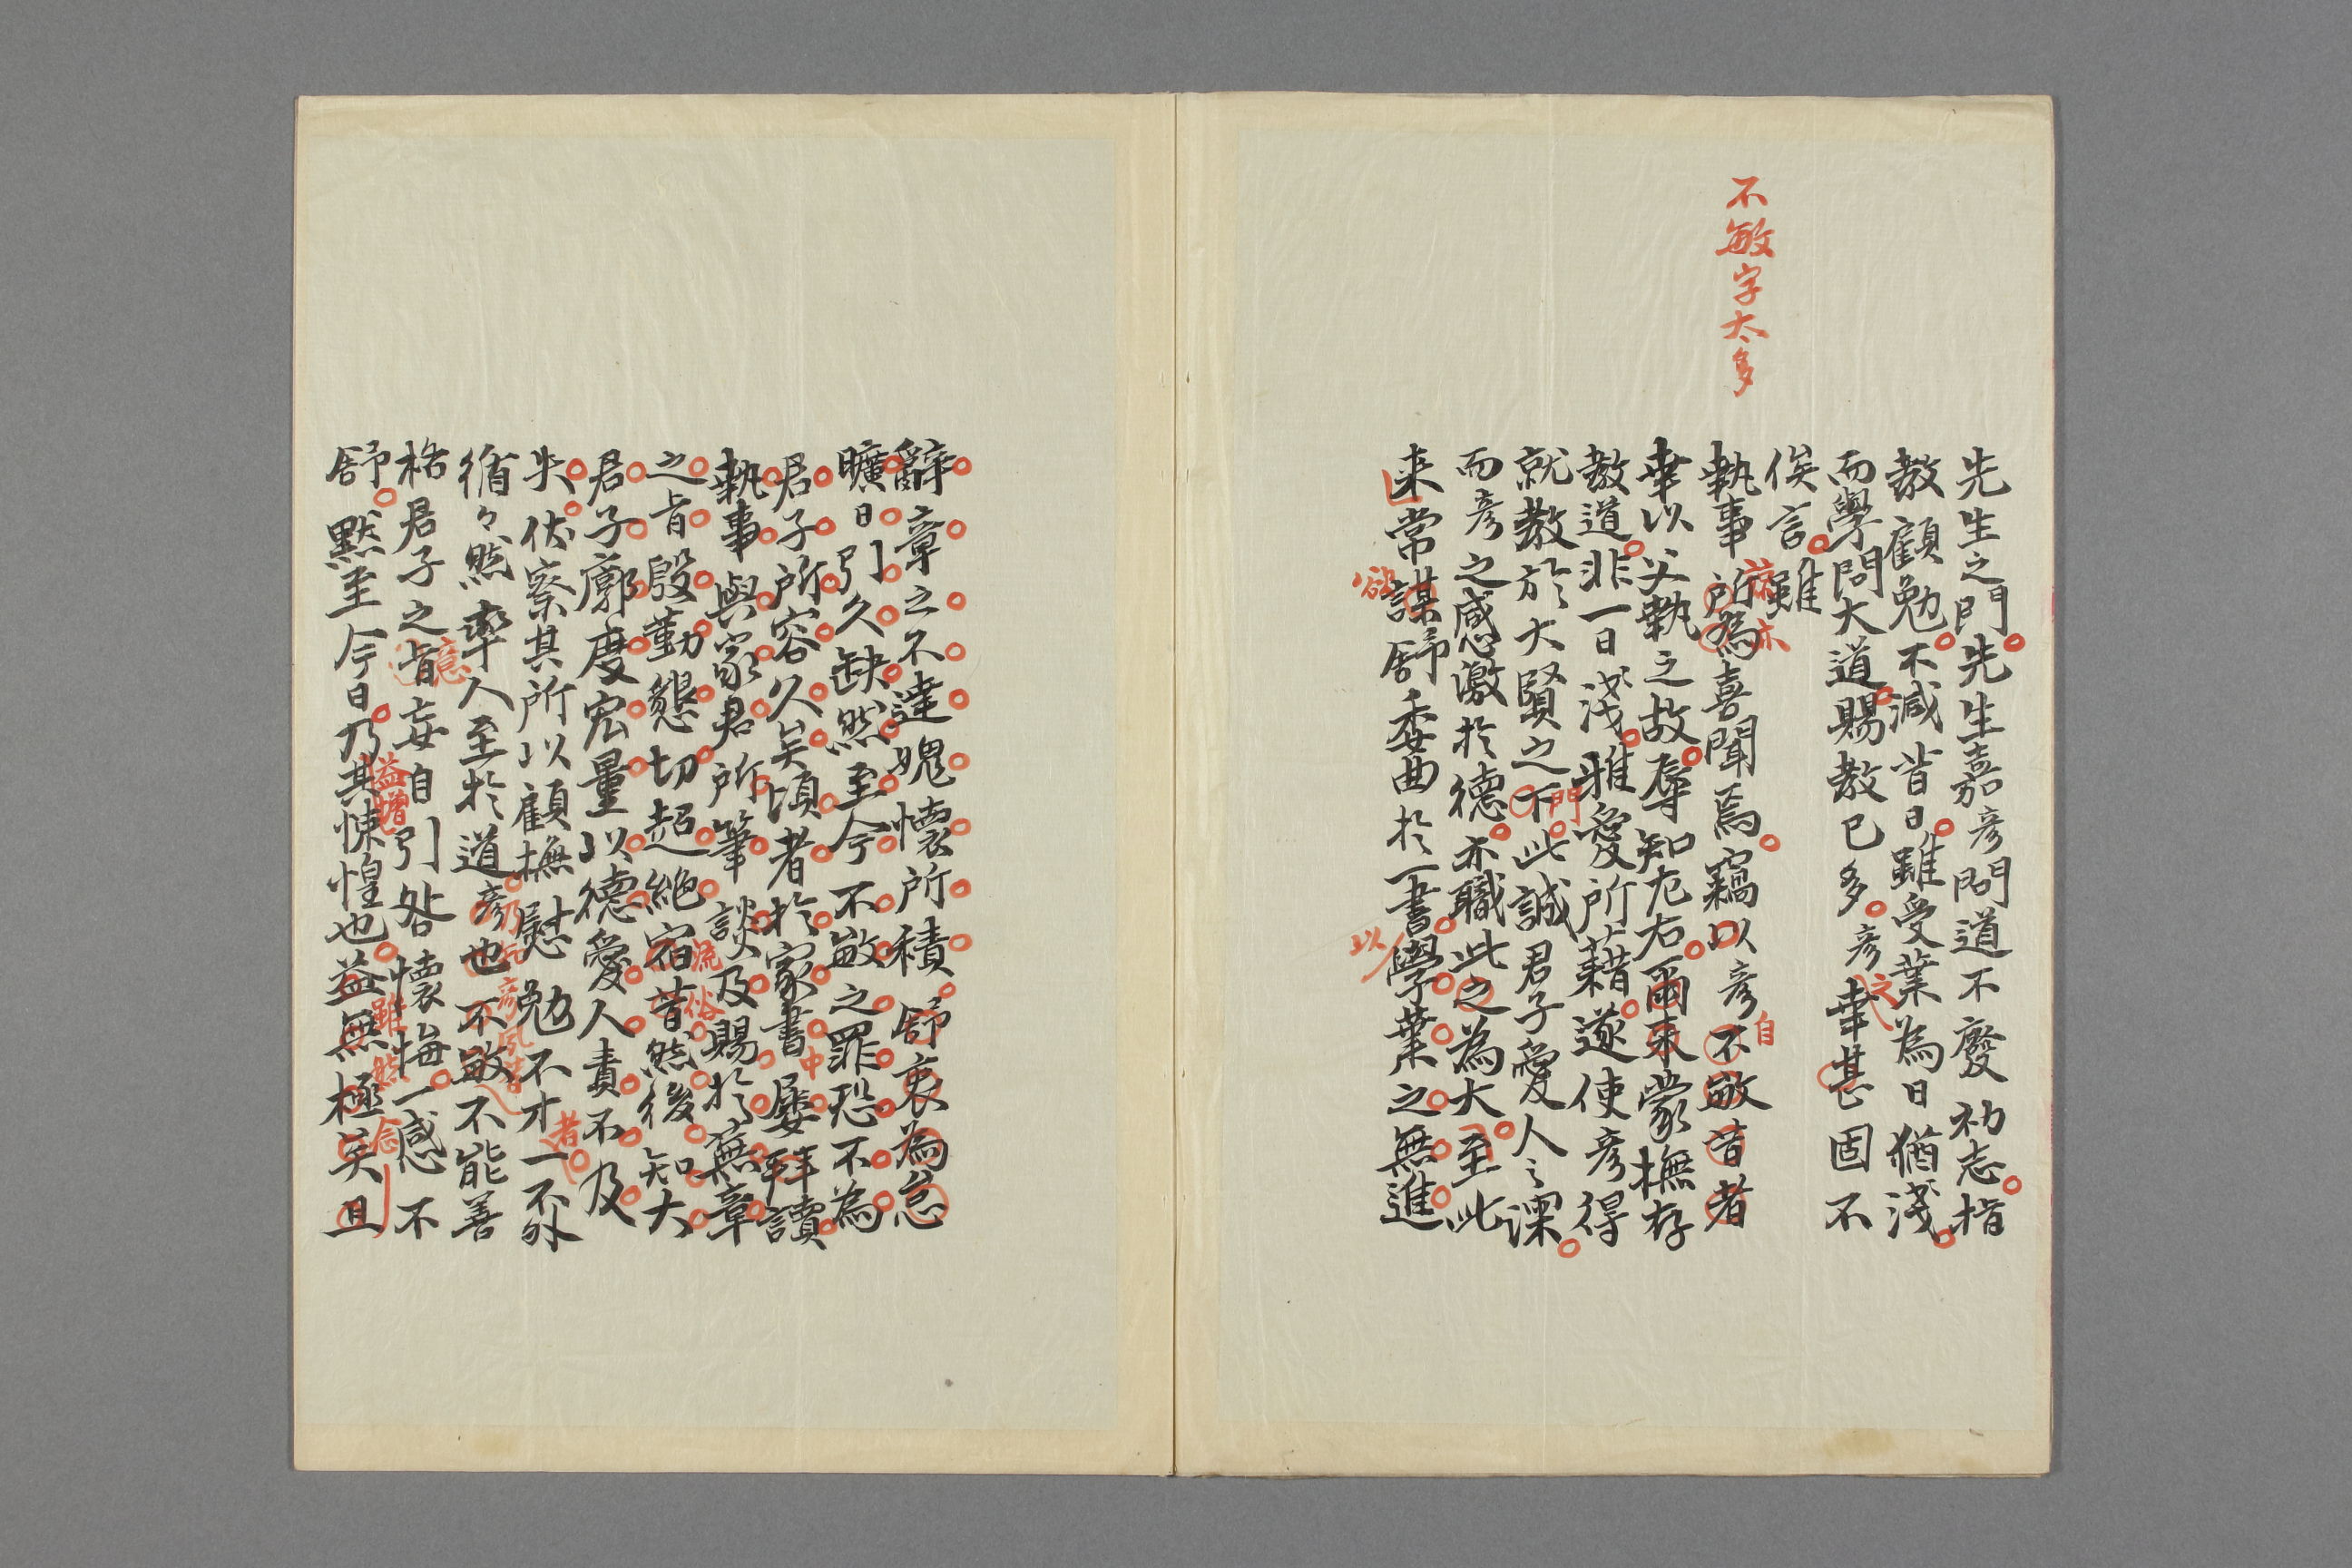 不敏字太多
先生之門先生嘉彦問道不廢初志指
教顧勉不減昔日雖受業為日猶淺
而學問大道賜教已多彦之幸甚固不
俟言雖
執事所為亦喜聞焉竊以彦自不敏昔者
幸以父執之故辱知左右爾來蒙撫存
教道非一日淺雅愛所藉遂使彦得
就教於大賢之下門此誠君子愛人之深
而彦之感激於德亦職此之為大至此
来常謀欲舒委曲於一書以學業之無進
辭章之不達媿懷所積舒衷為怠
曠日引久缺然至今不敏之罪恐不為
君子所容久矣頃者於家書中屡拜讀
執事與家君所筆談及賜於蕪章
之旨殷勤懇切超絶宿昔流俗然後知大
君子廓度宏量以德愛人責不及
失伏察其所以顧撫慰勉不才者一不外
循々然率人至於道彦也不敏不能善
格君子之旨意妄自引咎懷悔一感不
舒默至今日乃其益增悚惶也益無極矣且雖然